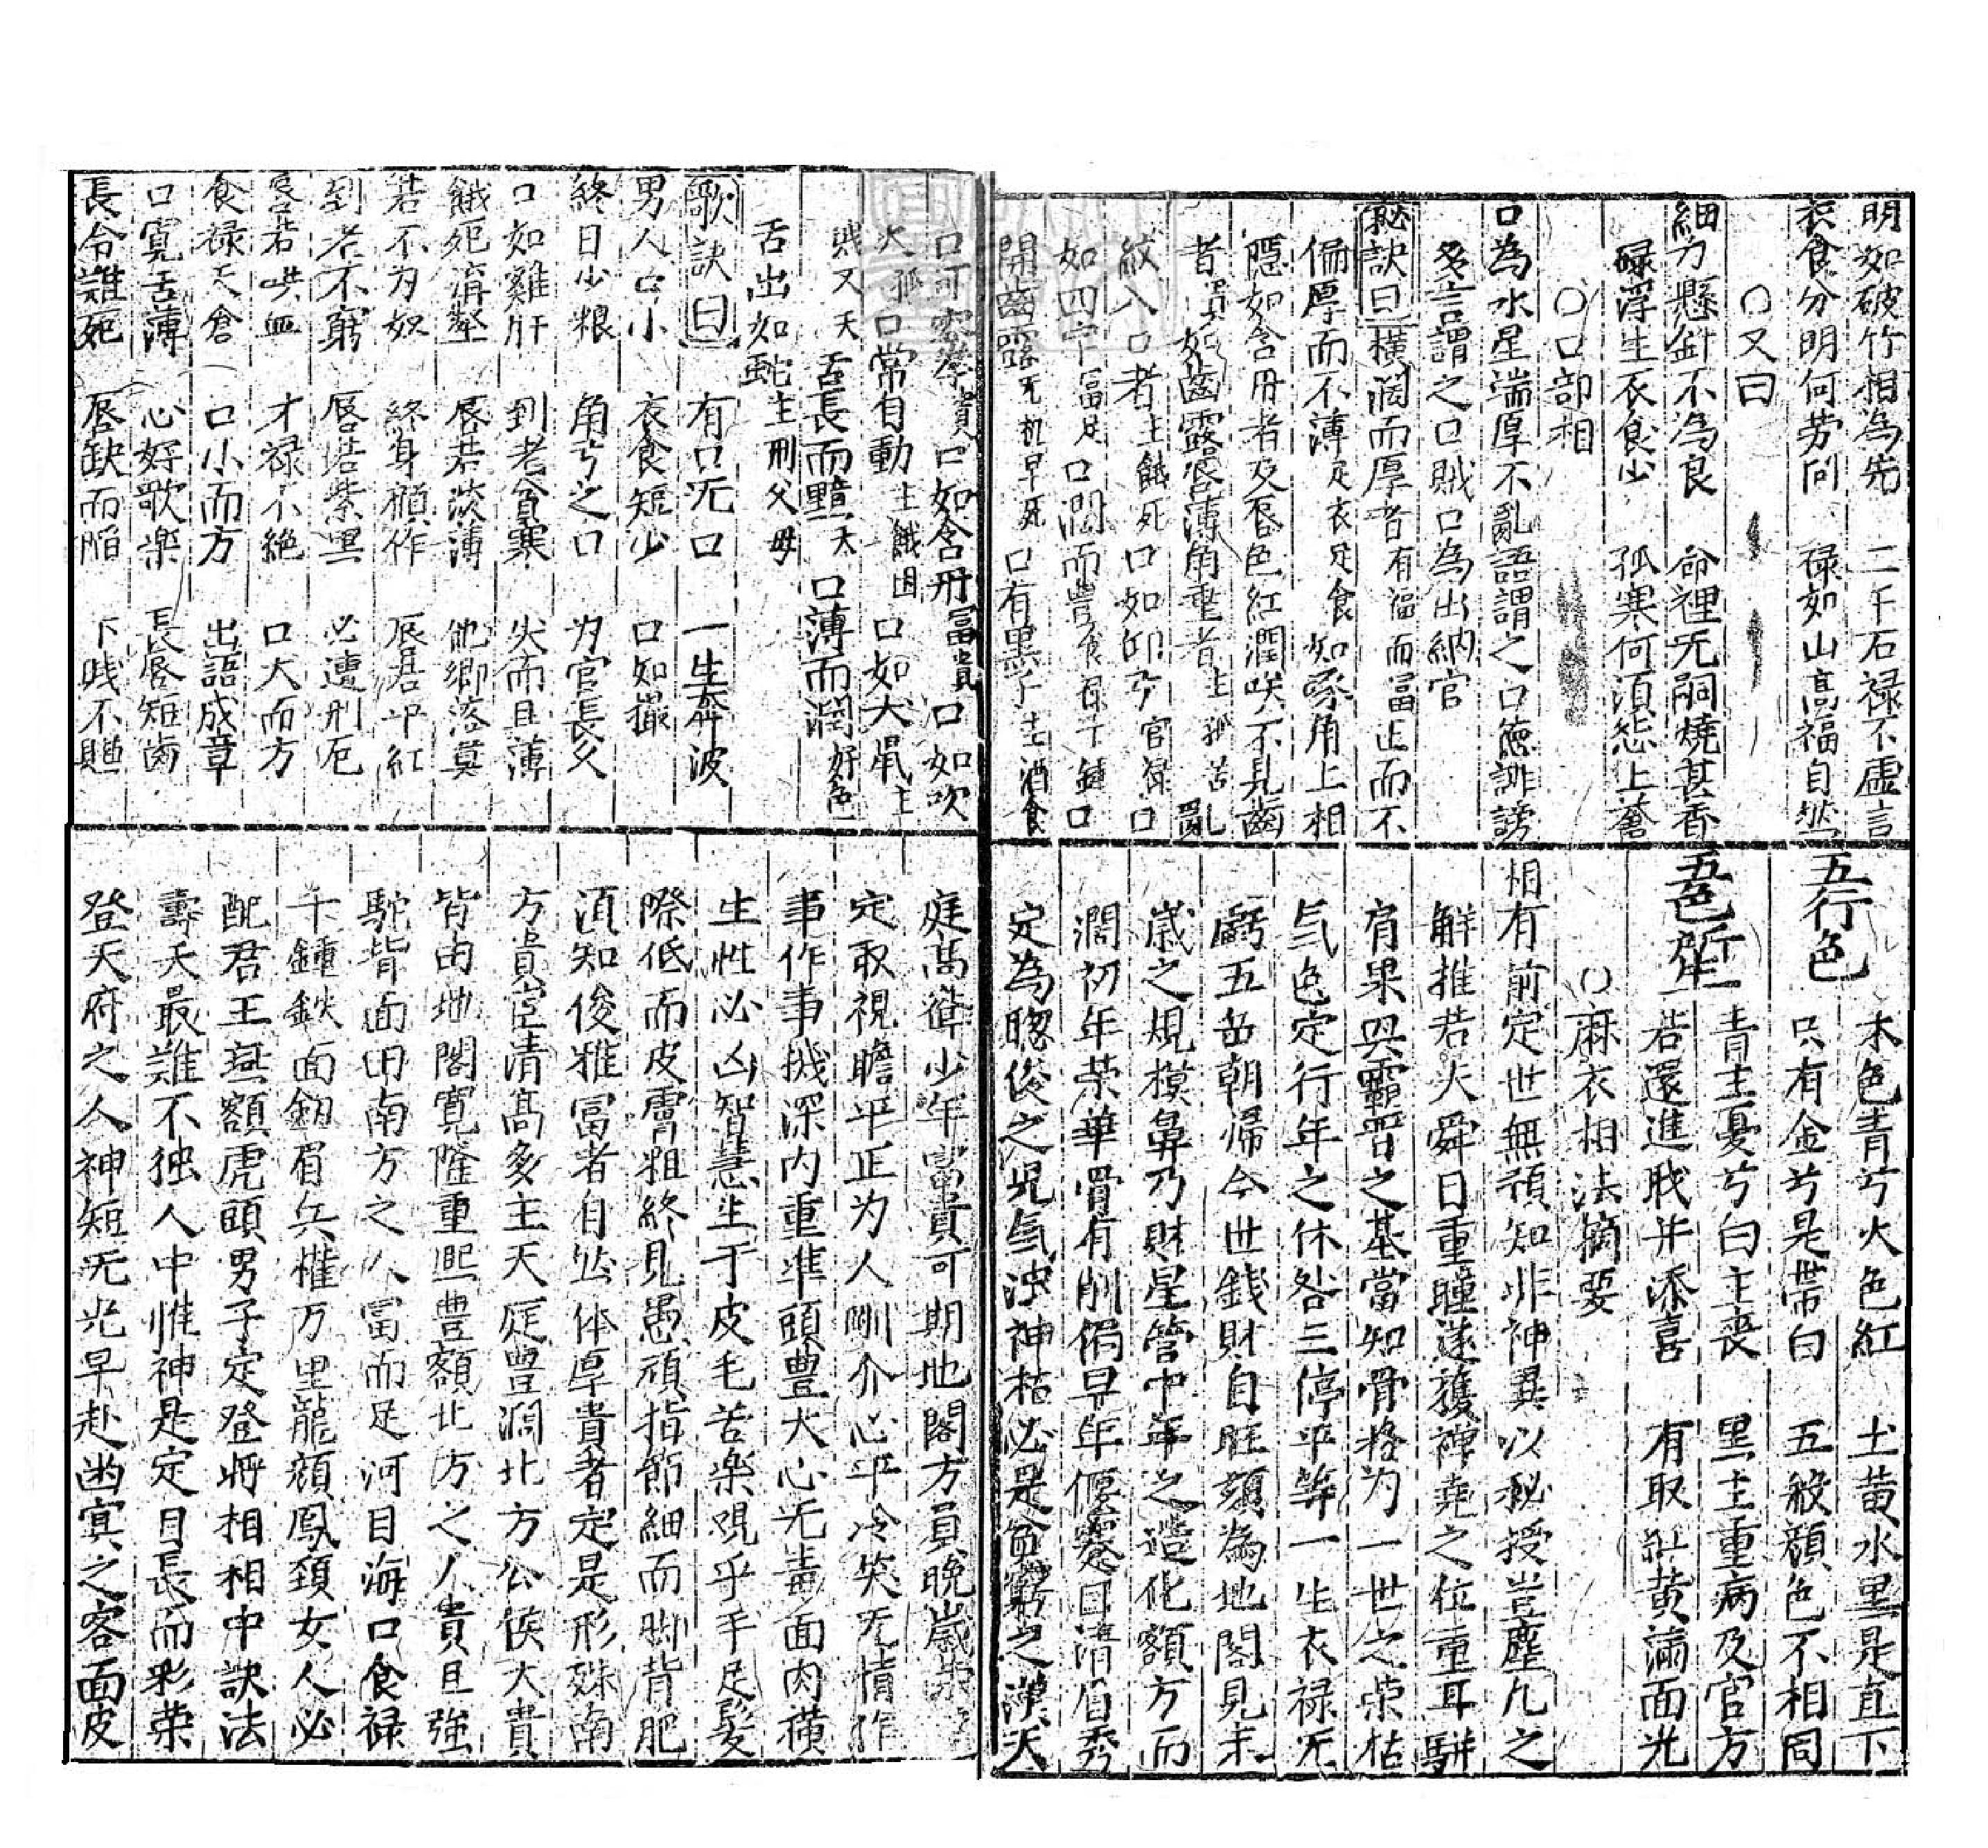 明如破竹相為先　二千石禄不虛言
衣食分明何劳问　禄如山高福自然
○又曰
細刀懸針不為良　命裡无嗣燒甚香
碌浮生衣食少　孤寒何湏怨上蒼
○口部相
口為水星端厚不亂語謂之口德誹謗
多言謂之口賊口為出納官
訣曰橫闊而厚者有福而冨正而不
偏厚而不薄足衣足食如啄角上相
隱如含丹者及唇色紅潤咲不見齒
者貴如齒露唇薄角垂者主孤苦亂
紋入口者主餓死口如仰弓官祿口
如四字冨足口濶而豊食祿千鍾口
開齒露无机早死口有黒子主酒食
五行色　木色青兮火色紅　土黄水黒是直下
只有金兮是帶白　五般顔色不相同
五色所生　青主憂兮白主喪　黒主重病及官方
若還進職并添喜　有取紅黄滿面光
○麻衣相法摘要
相有前定世無預知非神異以秘授豈塵凡之
解推若夫舜目重瞳遂獲禅堯之位重耳駢
肩果興霸晋之基當知骨格为一世之荣枯
氣色定行年之休咎三停平等一生衣禄无
虧五岳朝歸今世銭財自旺頦為地閣見末
歳之規模鼻乃財星管中年之造化額方而
濶初年荣華骨有削偏早年偃蹇目清眉秀
定為聰俊之児气浊神枯必是貧窮之漢天
口可容拳貴口如含丹冨貴口如吹
火孤口常自動主餓困口如犬鼠主
賎又夭舌長而黯夭口薄而濶好色
舌出如蛇主刑父母
歌訣曰　有口无口　一生奔波
男人口小　衣食短少　口如撮
終日少粮　角弓之口　为官長久
口如雞肝　到老貧寒　尖而且薄
餓死溝壑　唇若淡薄　他鄉落莫
若不为奴　終身顛作　唇若丹紅
到老不窮　唇若紫黒　必遭刑厄
唇若哄血　才禄不絶　口大而方
食禄天倉　口小而方　出語成章
口寛舌薄　心好歌楽　長唇短齒
長命難死　唇缺而陷　下賎不
庭高聳少年富貴可期地閣方員晚歳荣
定取視瞻平正为人剛介心平冷笑无情作
事作事机深内重準頭豊大心无毒面肉横
生性必凶智慧生于皮毛苦楽覌乎手足髪
際低而皮膚粗終見愚頑指節細而脚背肥
湏知俊雅冨者自然体厚貴者定是形殊南
方貴宦清高多主天庭豊濶北方公侯大貴
皆由地閣寛隆重熙豊額北方之人貴且強
駝背面田南方之人富而足河目海口食禄
千鍾鉄面釼眉兵權万里龍顔鳳頚女人必
配君王燕額虎頭男子定登將相相中訣法
壽夭最難不独人中惟神是定目長而彩荣
登天府之人神短无光早赴幽冥之客面皮